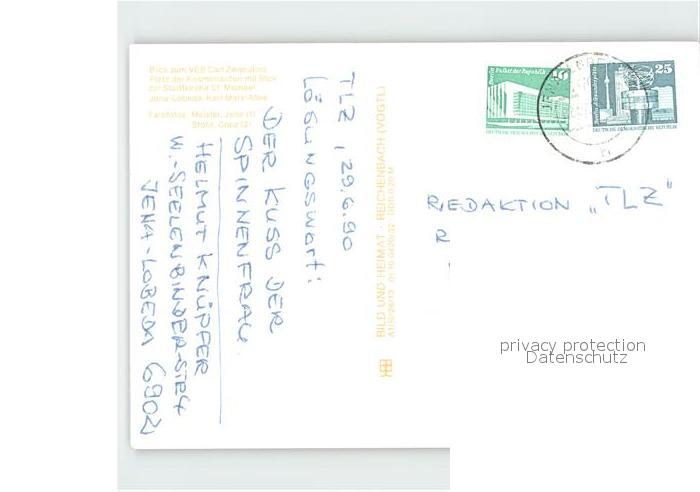 Blick zum VEB Carl Zeiss Jena
Platz der Kosmonauten mit Blick
zur Stadtkirche St. Michael
Jena-Lobeda, Karl-Marx-Allee
Farbfotos: Meister, Jena (1)
Stöhr, Greiz (2)
TLZ, 29.6.90
LÖSUNGSWORT:
DER KUSS DER
SPINNENFRAU.
HELMUT KNÜPFER
W.-SEELENBINDER-STR 4
JENA-LOBEDA 6902
BILD UND HEIMAT · REICHENBACH (VOGTL)
Berlin, Palast der Republik
5
DEUTSCHE DEMOKRATISCHE REPUBLIK
25
DEUTSCHE DEMOKRATISCHE REPUBLIK
REDAKTION „TLZ"
privacy protection
Datenschutz